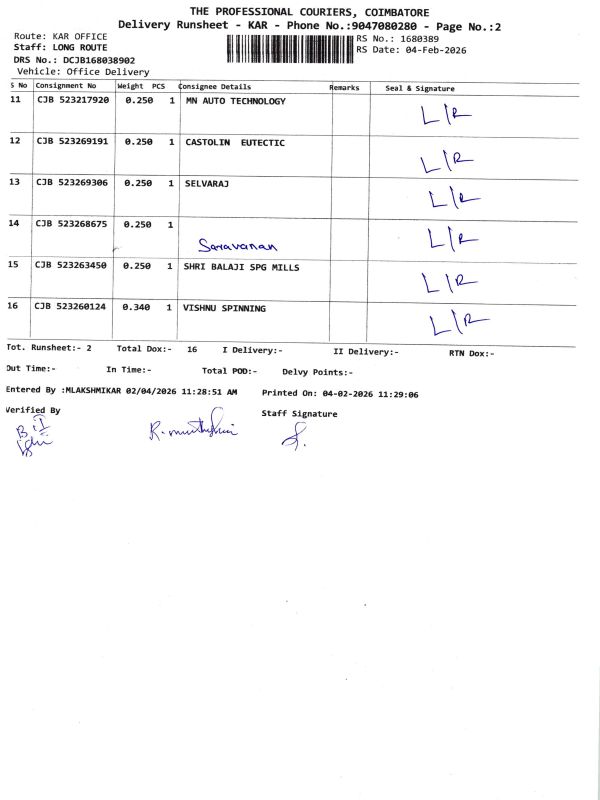 THE PROFESSIONAL COURIERS, COIMBATORE
Delivery Runsheet - KAR - Phone No.:9047080280 - Page No.:2
Route: KAR OFFICE RS No.: 1680389
Staff: LONG ROUTE RS Date: 04-Feb-2026
DRS No.: DCJB168038902
Vehicle: Office Delivery
S No Consignment No Weight PCS Consignee Details Remarks Seal & Signature
11 CJB 523217920 0.250 1 MN AUTO TECHNOLOGY L/R
12 CJB 523269191 0.250 1 CASTOLIN EUTECTIC L/R
13 CJB 523269306 0.250 1 SELVARAJ L/R
14 CJB 523268675 0.250 1 L/R
Saravanan
15 CJB 523263450 0.250 1 SHRI BALAJI SPG MILLS L/R
16 CJB 523260124 0.340 1 VISHNU SPINNING L/R
Tot. Runsheet:- 2 Total Dox:- 16 I Delivery:- II Delivery:- RTN Dox:-
Out Time:- In Time:- Total POD:- Delvy Points:-
Entered By :MLAKSHMIKAR 02/04/2026 11:28:51 AM Printed On: 04-02-2026 11:29:06
Verified By Staff Signature